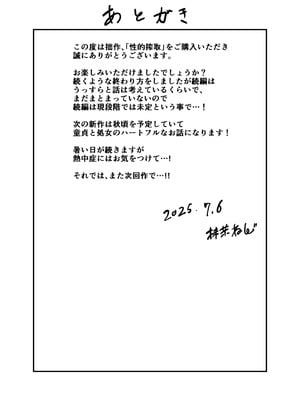 あとがき
この度は拙作、「性的搾取」をご購入いただき
誠にありがとうございます。
お楽しみいただけましたでしょうか？
続くような終わり方をしましたが続編は
うっすらと話は考えているくらいで、
まだまとまっていないので
続編は現段階では未定という事で…！
次の新作は秋頃を予定していて
童貞と処女のハートフルなお話になります！
暑い日が続きますが
熱中症にはお気をつけて…!
それでは、また次回作で…!!
2025.7.6